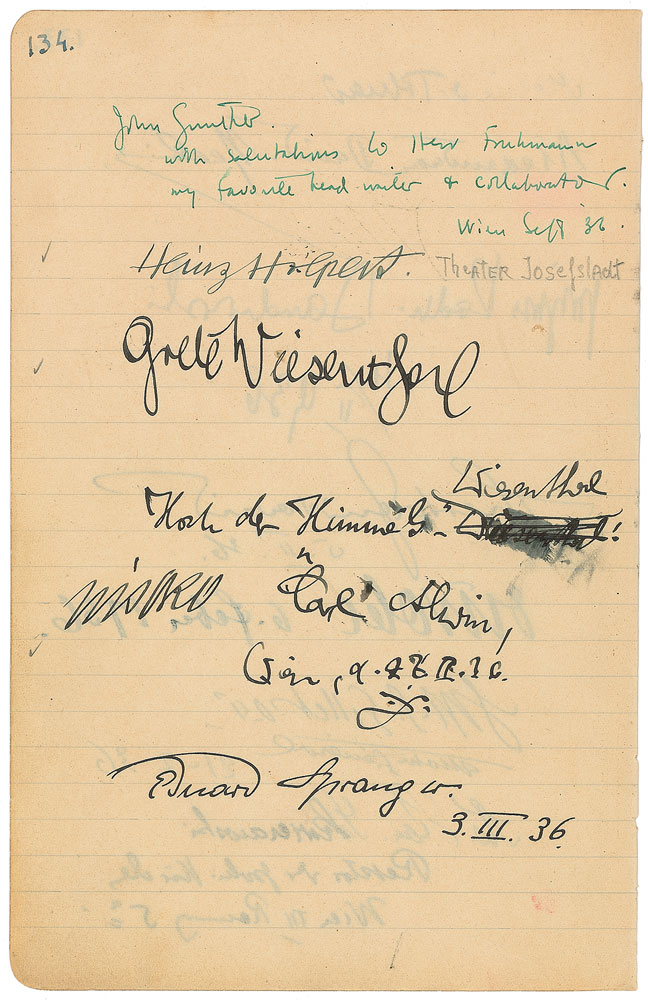 134.
John Gunther.
with salutations to Herr Fruhmann
my favorite head waiter & collaborator.
Wien Sept 36.
Heinz Hilpert. THEATER JOSEFSTADT
Grete Wiesenthal
Wiesenthal
Hoch der Himmel
Carl Alwin,
Wien, d. II. 36.
Eduard Spranger.
3. III. 36.